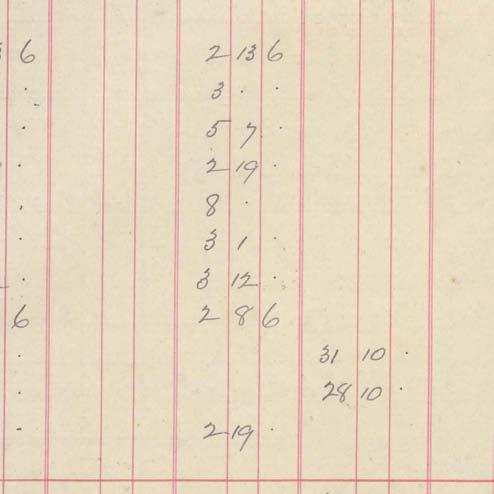 6 2 13 6
. 3 . .
. 5 7 .
. 2 19 .
. 8 .
. 3 1 .
. 3 12 .
6 2 8 6
. 31 10 .
. 28 10 .
- 2 19 .